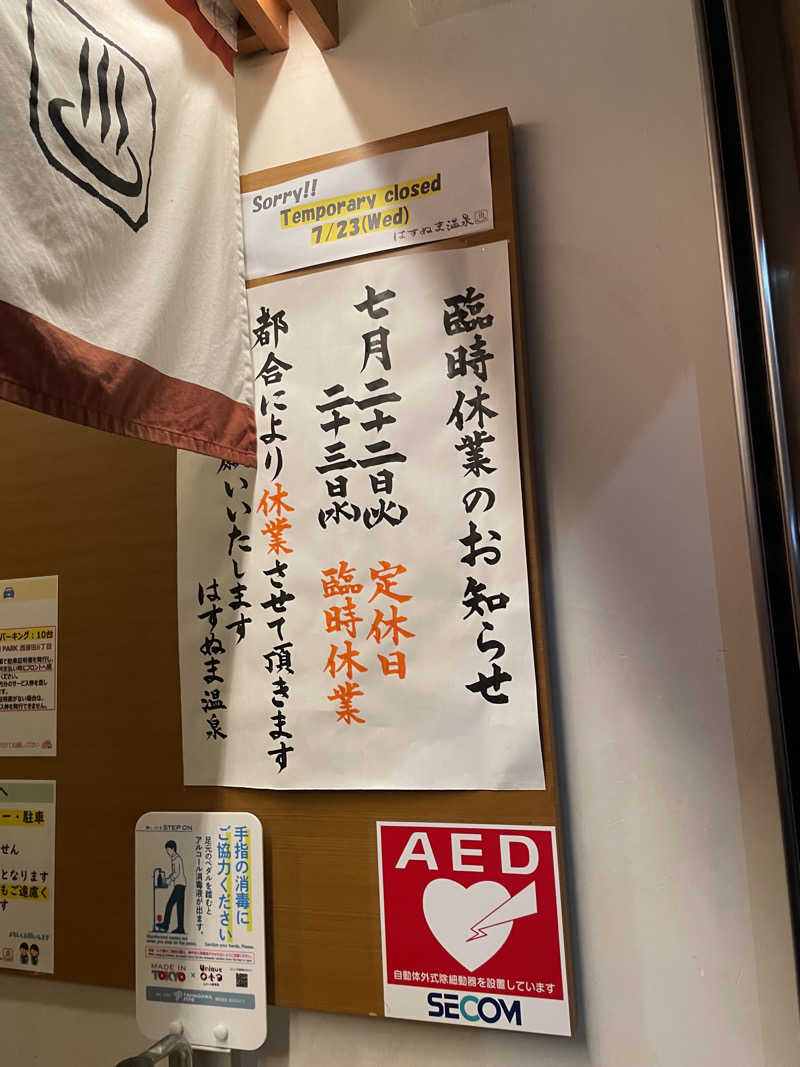 Sorry!!
Temporary closed
7/23(Wed)
はすぬま温泉
臨時休業のお知らせ
七月二十二日(火) 定休日
二十三日(水) 臨時休業
都合により休業させて頂きます
願いいたします
はすぬま温泉
パーキング:10台
ー・駐車
せん
となります
もご遠慮く
す
STEP ON
手指の消毒に
ご協力ください
足元のペダルを踏むと
アルコール消毒液が出ます。
MADE IN
TOKYO
×
Unique
OTA
AED
自動体外式除細動器を設置しています
SECOM